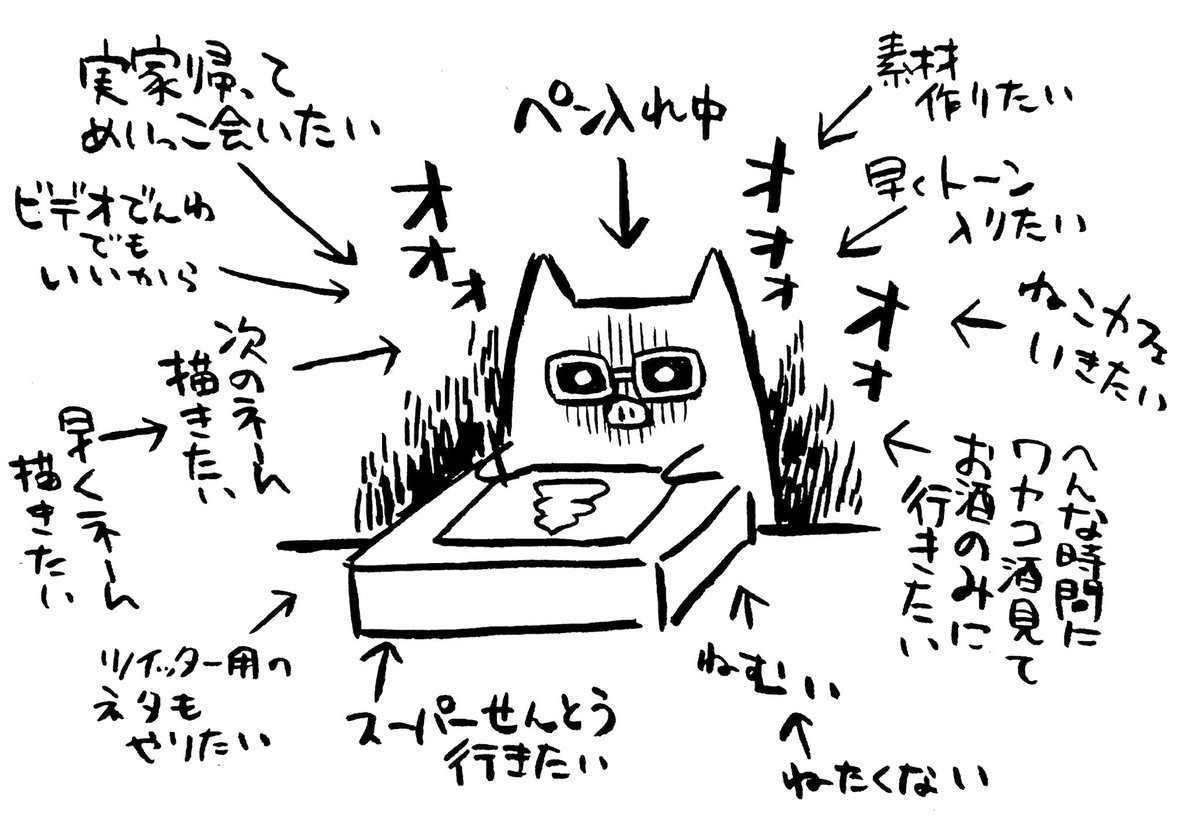 実家帰って
めいっこ会いたい
ビデオでんわ
でも
いいから
次のネーム
描きたい
早くネーム
描きたい
ツイッター用の
ネタも
やりたい
スーパーせんとう
行きたい
ペン入れ中
オオォ
オオォ
オォ
素材
作りたい
早くトーン
入りたい
ねこカフェ
いきたい
へんな時間に
ワカコ酒見て
お酒のみに
行きたい
ねむい
ねたくない